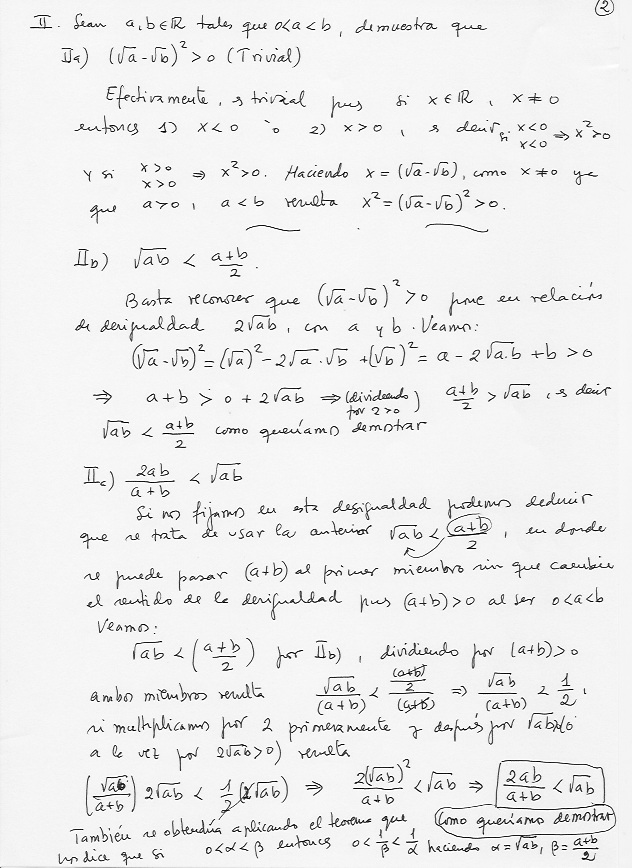 ②
II. Sean a, b ∈ ℝ tales que 0<a<b, demuestra que
IIa) (√a-√b)² > 0 (Trivial)
Efectivamente, es trivial pues si x ∈ ℝ, x ≠ 0
entonces 1) x<0 ò 2) x>0, es decir si x<0 x<0 ⇒ x²>0
Y si x>0 x>0 ⇒ x²>0. Haciendo x = (√a-√b), como x≠0 ya
que a>0, a<b resulta x² = (√a-√b)² > 0.
IIb) √ab < (a+b)/2.
Basta reconocer que (√a-√b)² > 0 pone en relación
de desigualdad 2√ab, con a y b. Veamos:
(√a-√b)² = (√a)² - 2√a·√b + (√b)² = a - 2√a.b + b > 0
⇒ a+b > 0 + 2√ab ⇒ (dividiendo por 2>0) (a+b)/2 > √ab, es decir
√ab < (a+b)/2 como queríamos demostrar
IIc) 2ab/(a+b) < √ab
Si nos fijamos en esta desigualdad podemos deducir
que se trata de usar la anterior √ab < (a+b)/2, en donde
se puede pasar (a+b) al primer miembro sin que cambie
el sentido de la desigualdad pues (a+b)>0 al ser 0<a<b
Veamos:
√ab < ((a+b)/2) por IIb), dividiendo por (a+b)>0
ambos miembros resulta √ab/(a+b) < ((a+b)/2)/(a+b) ⇒ √ab/(a+b) < 1/2,
si multiplicamos por 2 primeramente y después por √ab>0 (ó
a la vez por 2√ab>0) resulta
(√ab/(a+b)) 2√ab < 1/2 (2√ab) ⇒ 2(√ab)²/(a+b) < √ab ⇒ 2ab/(a+b) < √ab
como queríamos demostrar
También se obtendría aplicando el teorema que
nos dice que si 0<α<β entonces 0<1/β<1/α haciendo α=√ab, β=(a+b)/2